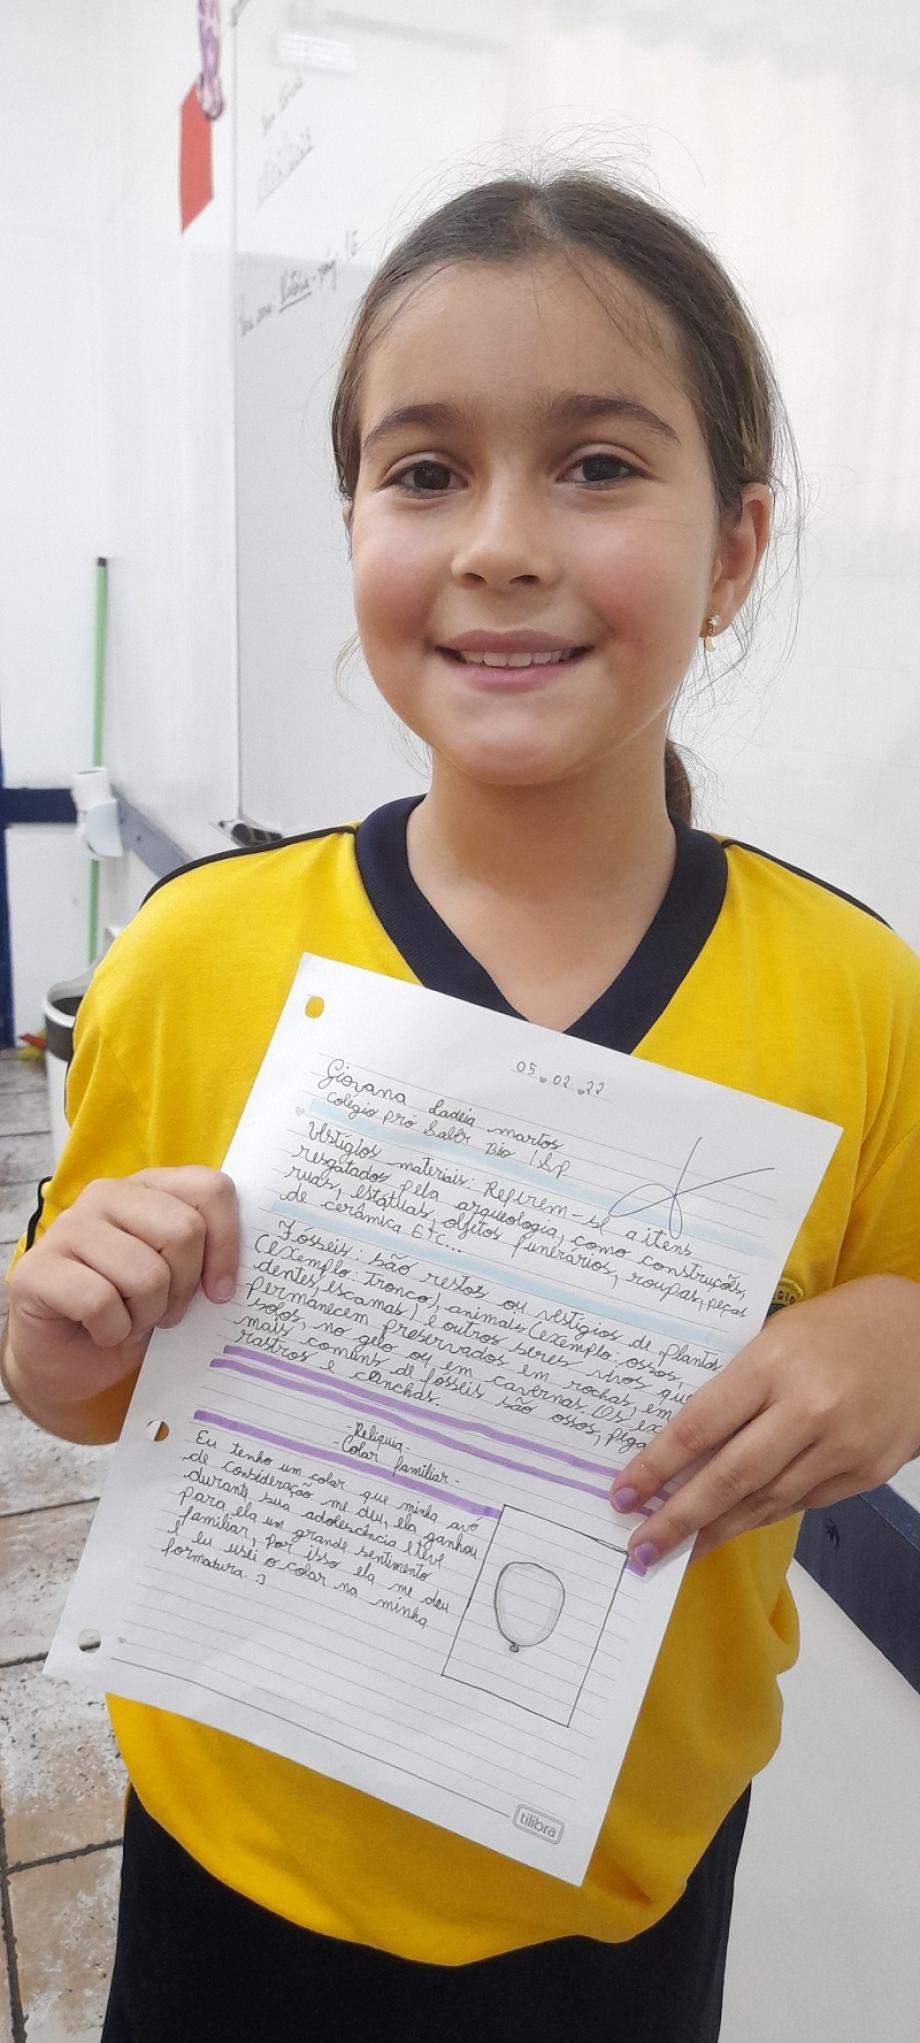 pág. 16
05.02.22
Giovana Ladeia martos
Colégio pró Saber Bio / Sp
Vestígios materiais: Referem-se a itens
resgatados pela arqueologia, como construções,
ruas, estátuas, objetos funerários, roupas, peças
de cerâmica ETC...
Fósseis: são restos ou vestígios de plantas
(exemplo: tronco), animais (exemplo: ossos,
dentes, escamas) e outros seres vivos que
permanecem preservados em rochas, em
solos, no gelo ou em cavernas. Os ex
mais comuns de fósseis são ossos, pega
rastros e conchas.
-Relíquia-
-Colar familiar-
Eu tenho um colar que minha avó
de consideração me deu, ela ganhou
durante sua adolescência e teve
para ela um grande sentimento
familiar, por isso ela me deu
e eu usei o colar na minha
formatura. :)
tilibra